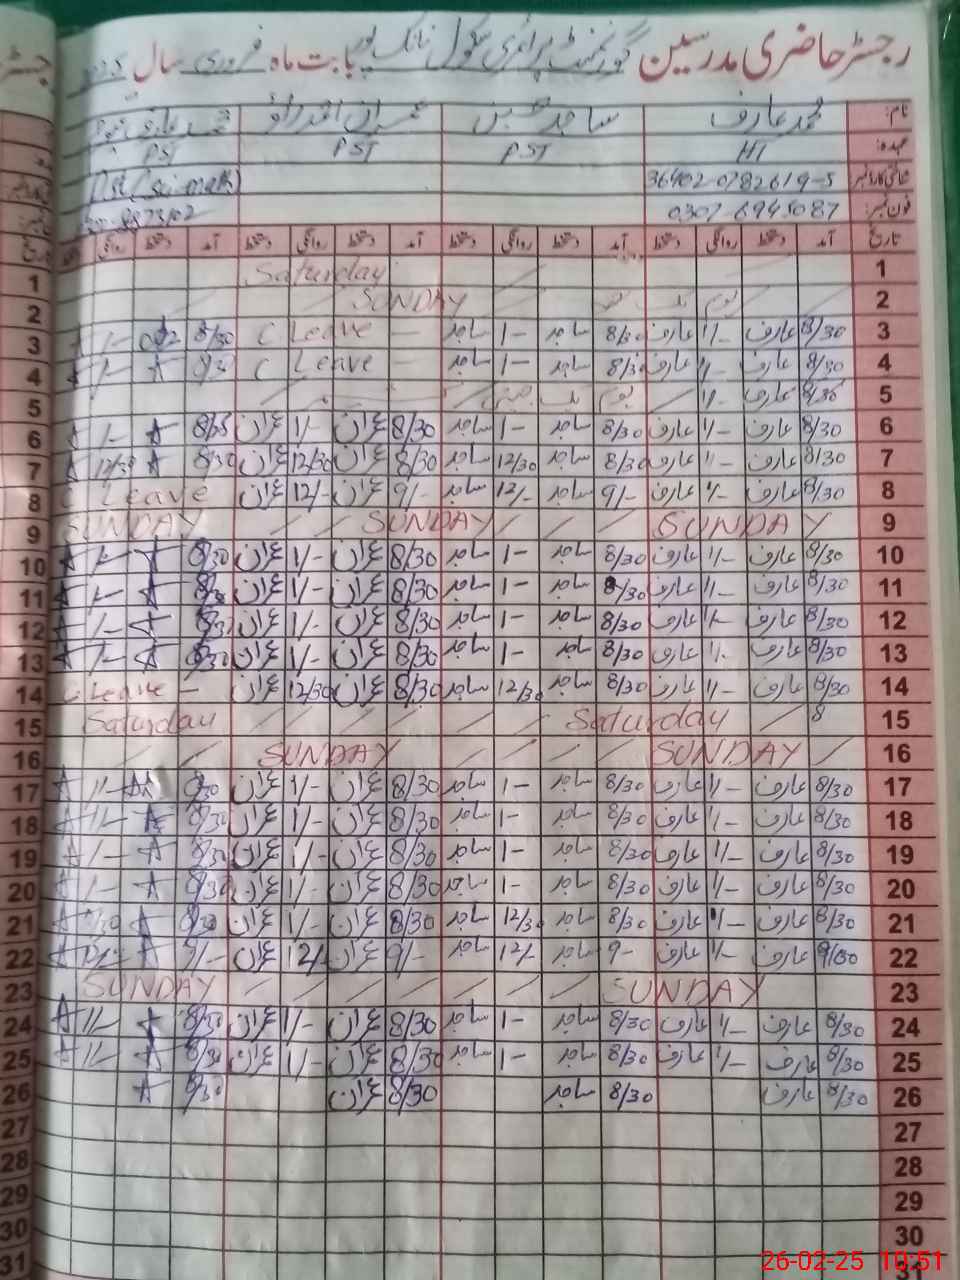 رجسٹر حاضری مدرسین گورنمنٹ پرائمری سکول نانک پور بابت ماہ فروری سال 2025
نام: محمد عارف ساجد حسین عمران احمد راؤ محمد
عہدہ: HT PST PST PST
شناختی کارڈ نمبر 36402-0782619-5 (Sci-math)
فون نمبر: 0307-6945087
تاریخ آمد دستخط روانگی دستخط آمد دستخط روانگی دستخط آمد دستخط روانگی دستخط آمد دستخط روانگی دستخط
1 Saturday
2 SUNDAY
3 8/30 عارف 1/- عارف 8/30 ساجد 1- ساجد C Leave 8/30 1-
4 8/30 عارف 1/- عارف 8/30 ساجد 1- ساجد C Leave 8/30 1-
5 8/30 عارف 1/- یوم
6 8/30 عارف 1/- عارف 8/30 ساجد 1- ساجد 8/30 عمران 1/- عمران 1-
7 8/30 عارف 1/- عارف 8/30 ساجد 12/30 ساجد 8/30 عمران 12/30 عمران 8/30 12/30
8 8/30 عارف 1/- عارف 9/- ساجد 12/- ساجد 9/- عمران 12/- عمران C Leave
9 SUNDAY SUNDAY SUNDAY
10 8/30 عارف 1/- عارف 8/30 ساجد 1- ساجد 8/30 عمران 1/- عمران 8/30 1-
11 8/30 عارف 1/- عارف 8/30 ساجد 1- ساجد 8/30 عمران 1/- عمران 8/30 1-
12 8/30 عارف 1/- عارف 8/30 ساجد 1- ساجد 8/30 عمران 1/- عمران 8/30 1-
13 8/30 عارف 1/- عارف 8/30 ساجد 1- ساجد 8/30 عمران 1/- عمران 8/30 1-
14 8/30 عارف 1/- عارف 8/30 ساجد 12/30 ساجد 8/30 عمران 12/30 عمران C Leave
15 8 Saturday Saturday
16 SUNDAY SUNDAY
17 8/30 عارف 1/- عارف 8/30 ساجد 1- ساجد 8/30 عمران 1/- عمران 8/30 1/-
18 8/30 عارف 1/- عارف 8/30 ساجد 1- ساجد 8/30 عمران 1/- عمران 8/30 1/-
19 8/30 عارف 1/- عارف 8/30 ساجد 1- ساجد 8/30 عمران 1/- عمران 8/30 1/-
20 8/30 عارف 1/- عارف 8/30 ساجد 1- ساجد 8/30 عمران 1/- عمران 8/30 1-
21 8/30 عارف 1/- عارف 8/30 ساجد 12/30 ساجد 8/30 عمران 1/- عمران 8/30
22 9/00 عارف 1/- عارف 9- ساجد 12/- ساجد 9/- عمران 12/- عمران 9/-
23 SUNDAY SUNDAY
24 8/30 عارف 1/- عارف 8/30 ساجد 1- ساجد 8/30 عمران 1/- عمران 8/30 1/-
25 8/30 عارف 1/- عارف 8/30 ساجد 1- ساجد 8/30 عمران 1/- عمران 8/30 1/-
26 8/30 عارف 8/30 ساجد 8/30 عمران 8/30
27
28
29
30
31
26-02-25 10:51